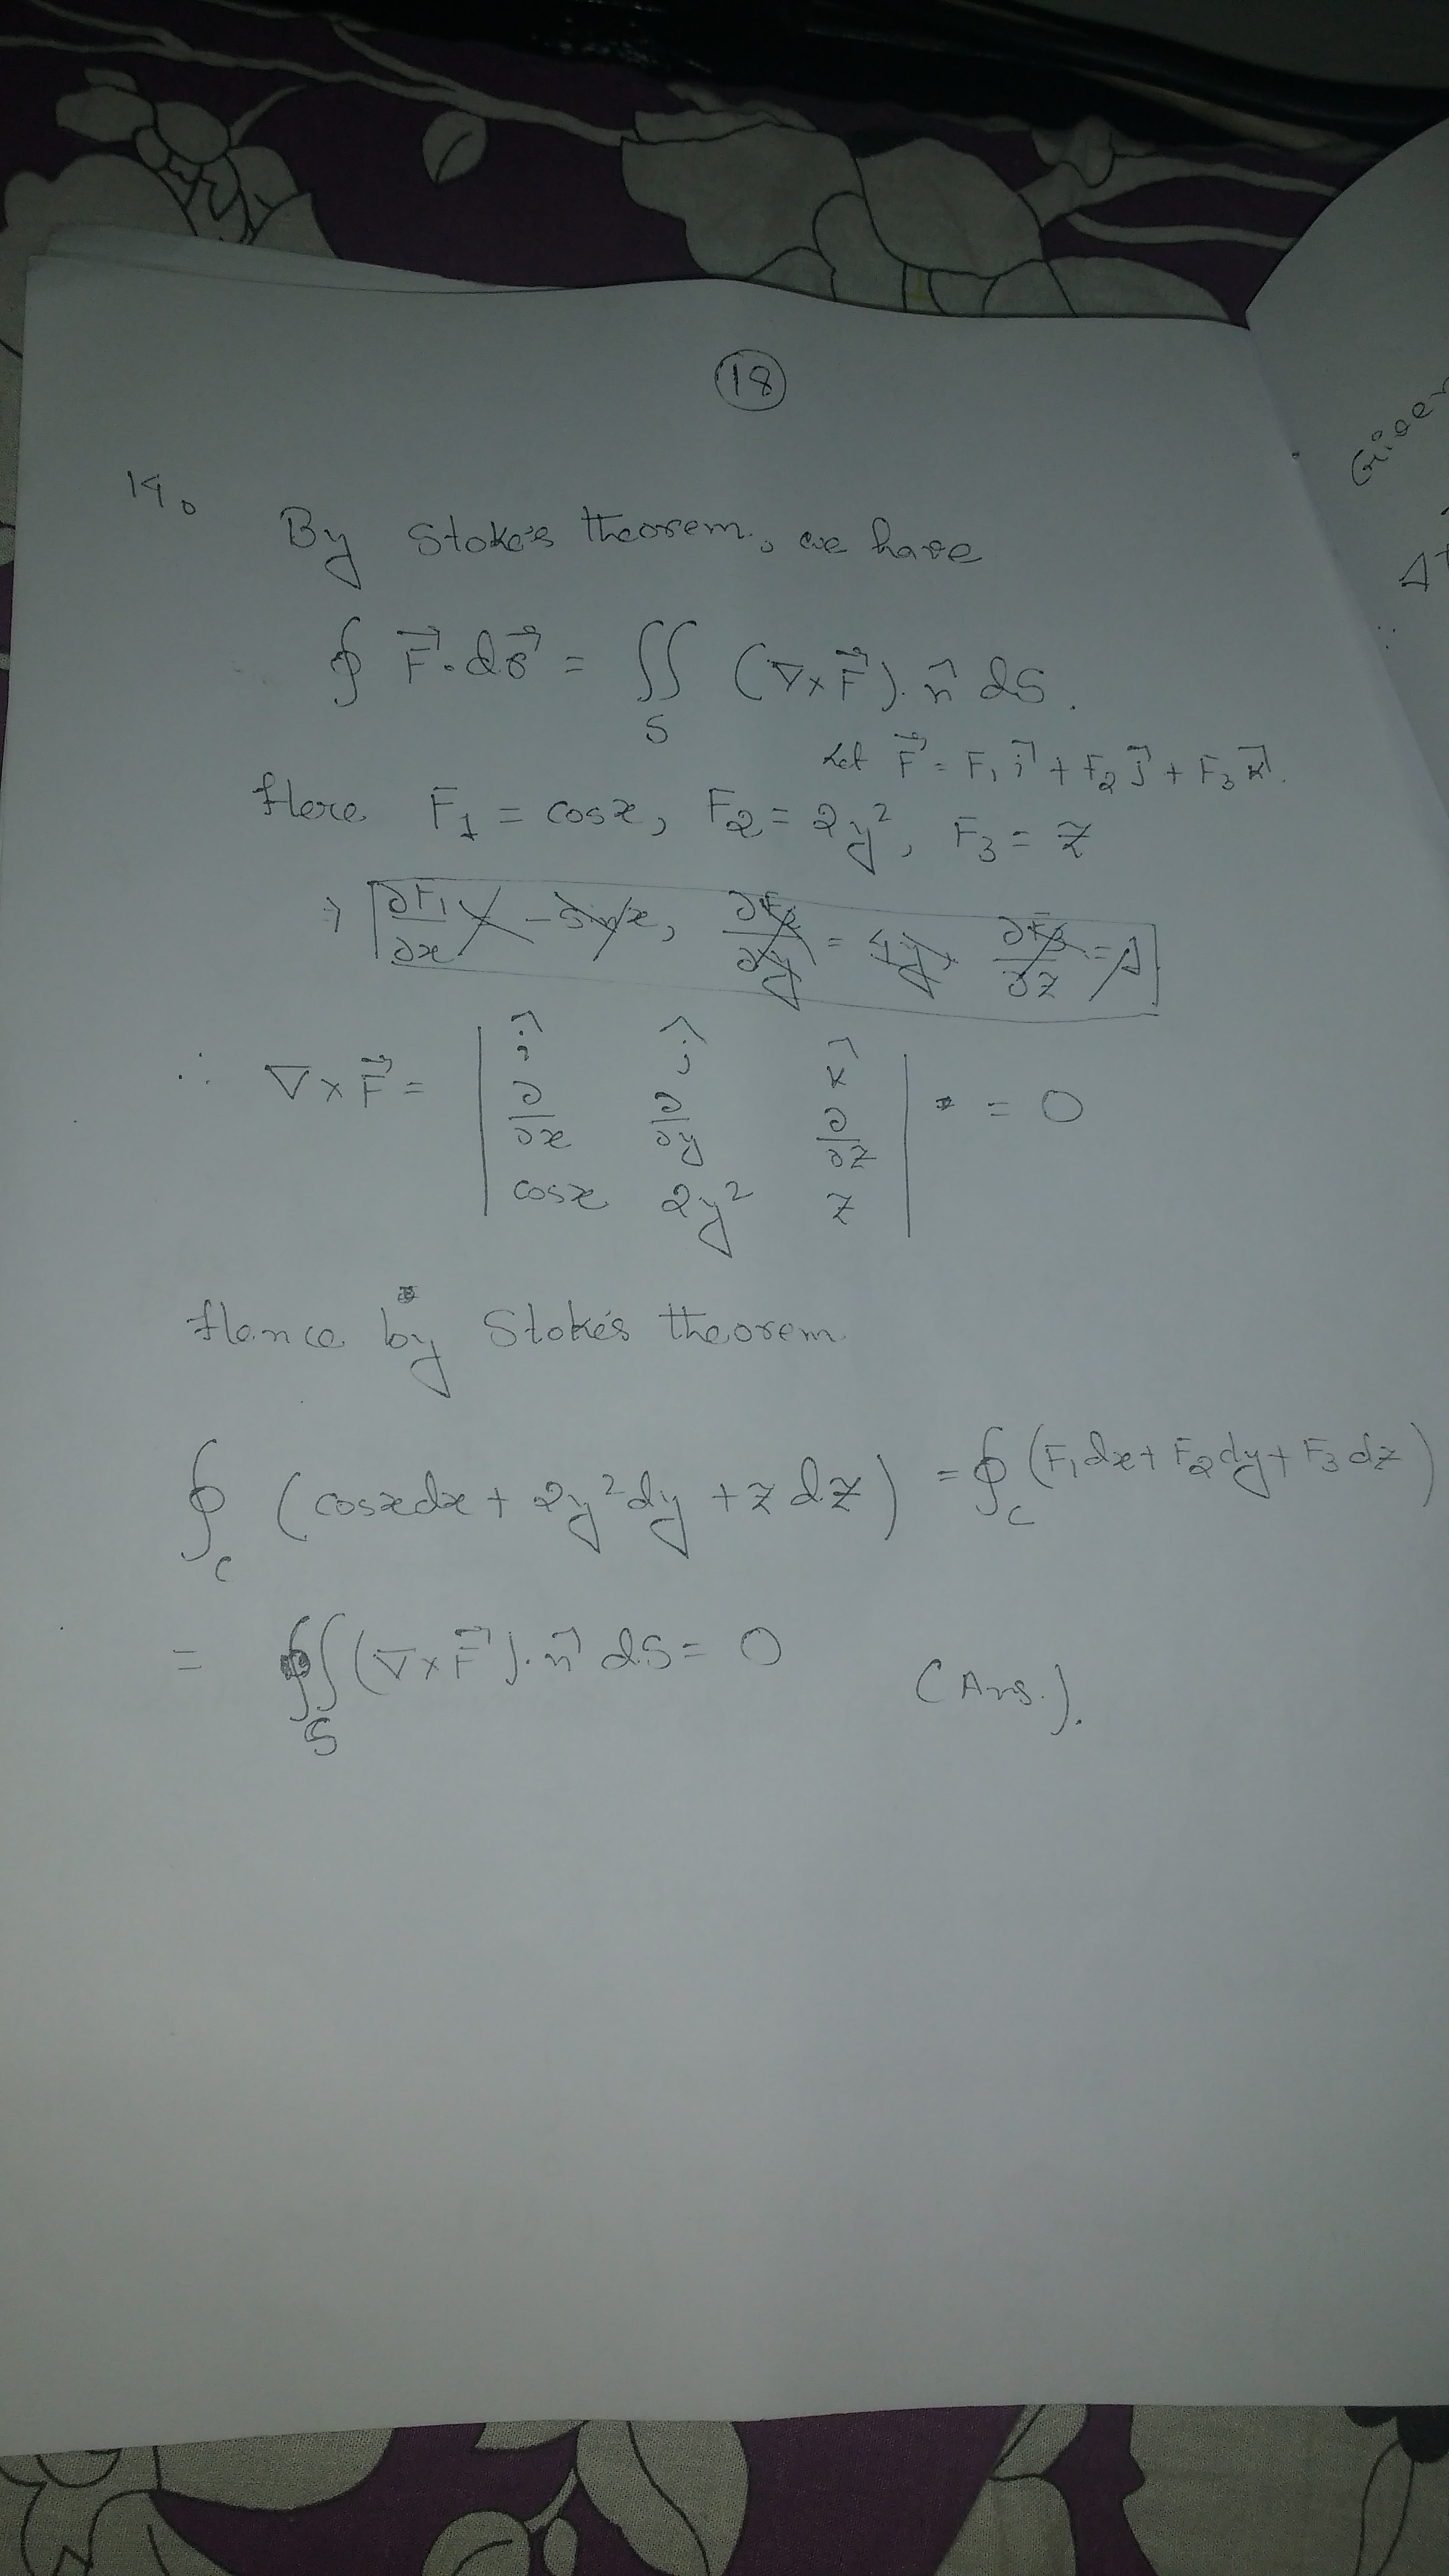 18
14.
By Stoke's theorem, we have
∮ F⃗·dr⃗ = ∬_S (∇×F⃗)·n̂ dS.
Let F⃗ = F₁ i⃗ + F₂ j⃗ + F₃ k⃗.
Here F₁ = cosx, F₂ = 2y², F₃ = z
⇒ ∂F₁/∂x = -sinx, ∂F₂/∂y = 4y, ∂F₃/∂z = 1
∴ ∇×F⃗ = | î ĵ k̂ | = 0
∂/∂x ∂/∂y ∂/∂z
cosx 2y² z
Hence by Stoke's theorem
∮_C (cosxdx + 2y²dy + z dz) = ∮_C (F₁dx + F₂dy + F₃dz)
= ∬_S (∇×F⃗)·n̂ dS = 0 (Ans.).